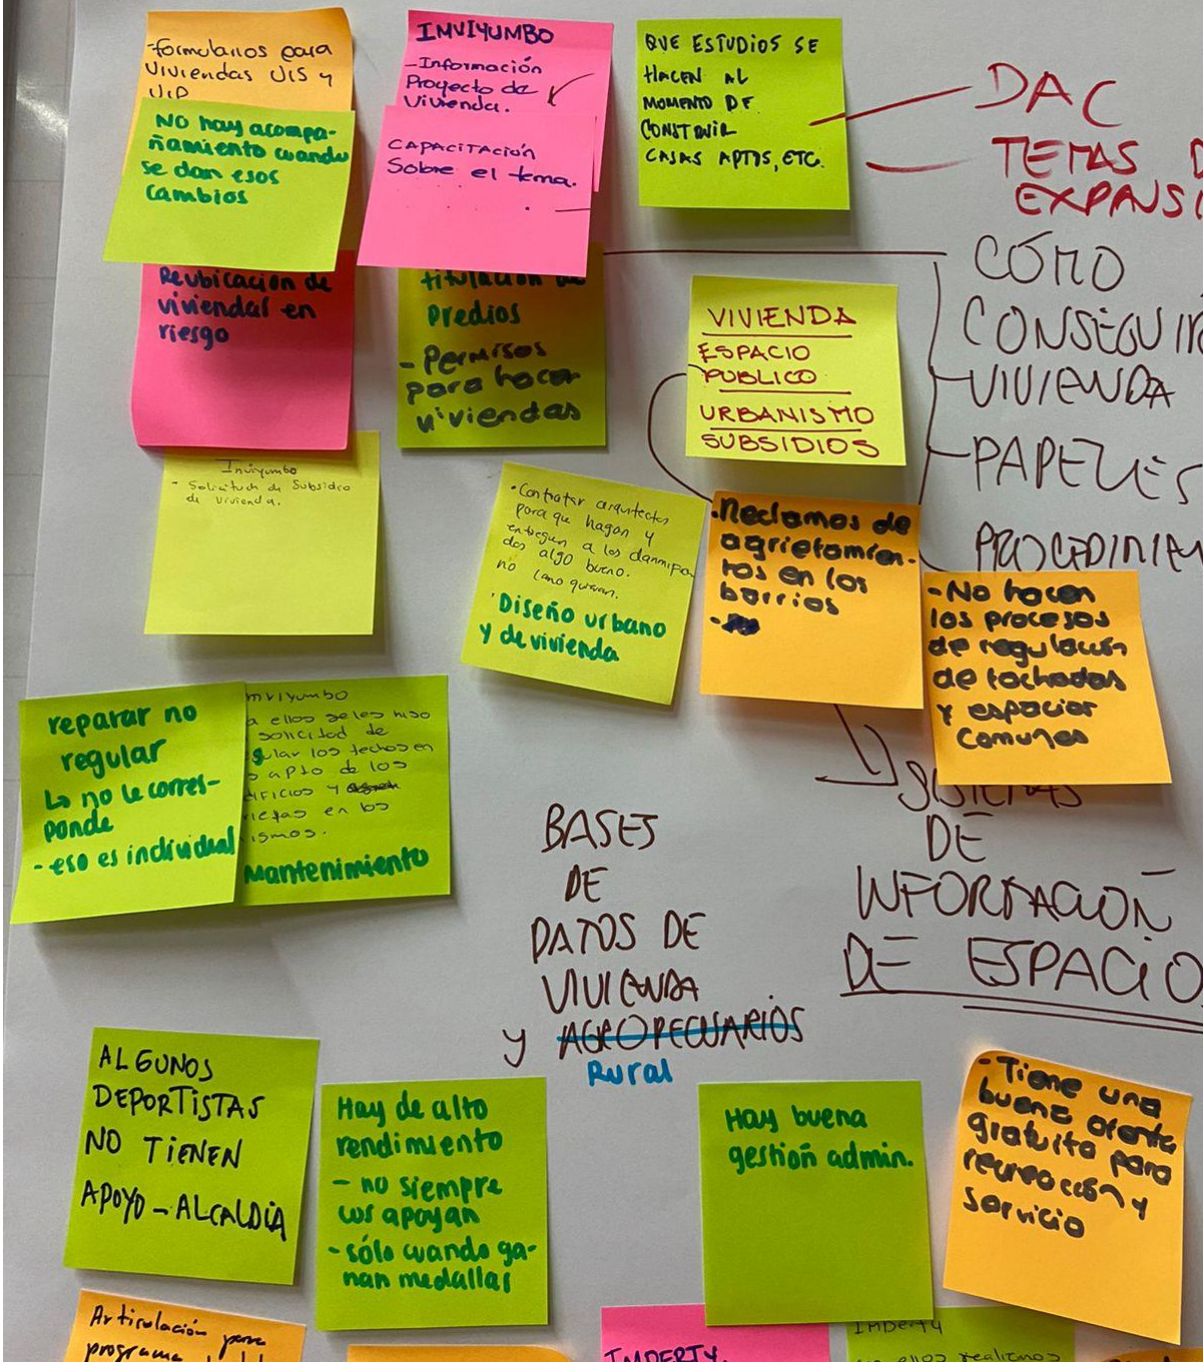 -formularios para
Viviendas VIS y
VIP
NO hay acompa-
ñamiento cuando
se dan esos
cambios
IMVIYUMBO
-Información
Proyecto de
Vivienda.
CAPACITACIÓN
Sobre el tema.
QUE ESTUDIOS SE
HACEN AL
MOMENTO DE
CONSTRUIR
CASAS APTOS, ETC.
DAC
TEMAS D
EXPANSI
CÓMO
CONSEGUIR
VIVIENDA
PAPELES
PROCEDIMIEN
Reubicación de
viviendas en
riesgo
titulación de
Predios
- Permisos
para hacer
viviendas
VIVIENDA
ESPACIO
PUBLICO
URBANISMO
SUBSIDIOS
Inviyumbo
- Solicitud de Subsidio
de vivienda.
• Contratar arquitectos
para que hagan y
entreguen a los damnifica
dos algo bueno.
no como quieran.
• Diseño urbano
y de vivienda
• Reclamos de
agrietamien-
tos en los
barrios
- No hacen
los procesos
de regulación
de fachadas
y espacios
Comunes
reparar no
regular
Lo no le corres-
ponde
- eso es individual
mviyumbo
a ellos se les hiso
solicitad de
gular los techos en
s apto de los
dificios y
rietas en los
ismos.
Mantenimiento
SISTEMAS
DE
INFORMACIÓN
DE ESPACIO
BASES
DE
DATOS DE
VIVIENDA
y AGROPECUARIOS
Rural
ALGUNOS
DEPORTISTAS
NO TIENEN
APOYO - ALCALDÍA
Hay de alto
rendimiento
- no siempre
los apoyan
- sólo cuando ga-
nan medallas
Hay buena
gestión admin.
- Tiene una
buena oferta
gratuita para
recreación y
servicio
Articulación para
programa
IMDERTY.
IMDERTY
ellos realizamos